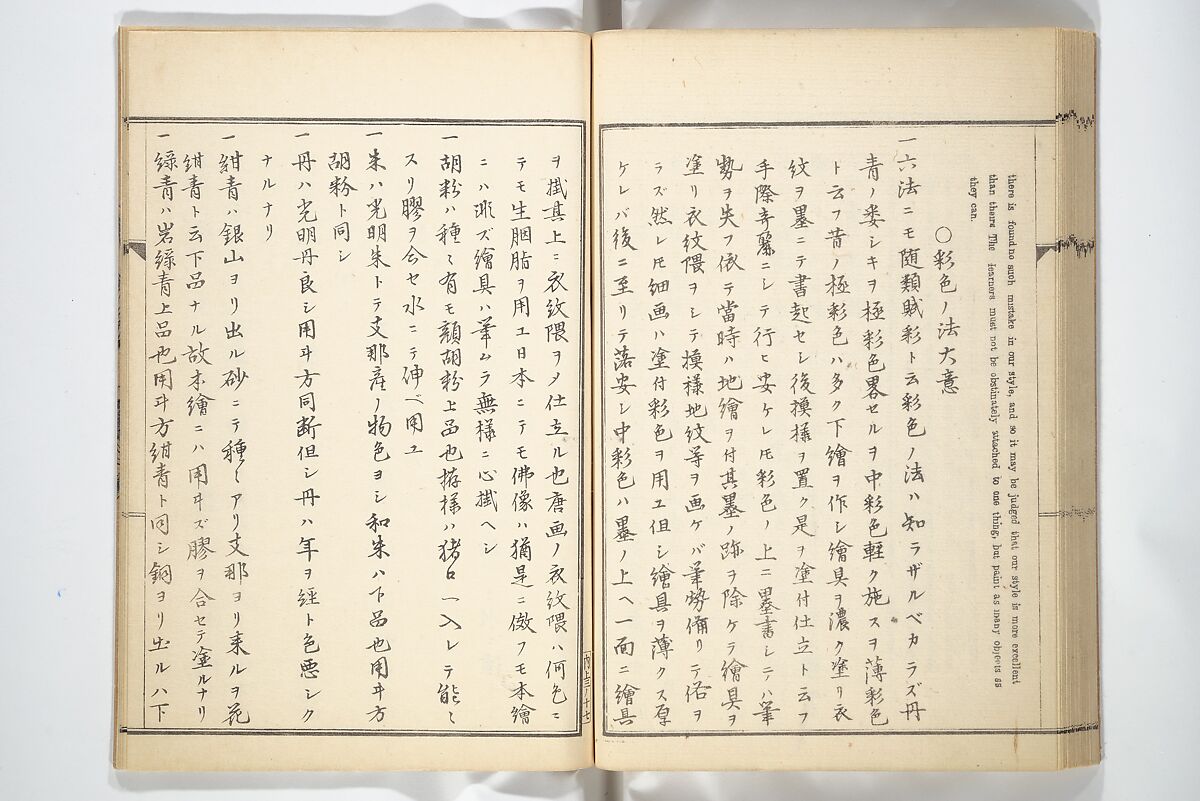 there is found no such mistake in our style, and so it may be judged that our style is more excellent
than theirs The learners must not be obstinately attached to one thing, but paint as many objects as
they can.
〇彩色ノ法大意
一六法ニモ随類賦彩ト云彩色ノ法ハ知ラザルベカラズ丹
青ノ委シキヲ極彩色畧セルヲ中彩色軽ク施スヲ薄彩色
ト云フ昔ノ極彩色ハ多ク下繪ヲ作シ繪具ヲ濃ク塗リ衣
紋ヲ墨ニテ書起セシ後摸様ヲ置ク是ヲ塗付仕立ト云フ
手際竒麗ニシテ行ヒ安ケレ𪜈彩色ノ上ニ墨書シテハ筆
勢ヲ失フ依テ當時ハ地繪ヲ付其墨ノ跡ヲ除ケラ繪具ヲ
塗リ衣紋隈ヲシテ摸様地紋等ヲ画ケバ筆勢備リテ俗ヲ
ラズ然レ𪜈細画ハ塗付彩色ヲ用ユ但シ繪具ヲ薄クス厚
ケレバ後ニ至リテ落安シ中彩色ハ墨ノ上ヘ一面ニ繪具
ヲ掛其上ニ衣紋隈ヲメ仕立ル也唐画ノ衣紋隈ハ何色ニ
テモ生胭脂ヲ用ユ日本ニテモ佛像ハ猶是ニ傚フモ本繪
ニハ用ズ繪具ハ筆ムラ無様ニ心掛ヘシ
一胡粉ハ種〻有モ顔胡粉上品也拵様ハ猪口ヘ入レテ能〻
スリ膠ヲ合セ水ニテ伸ベ用ユ
一朱ハ光明朱トテ支那産ノ物色ヨシ和朱ハ下品也用ヰ方
胡粉ト同シ
一丹ハ光明丹良シ用ヰ方同断但シ丹ハ年ヲ經ト色悪シク
ナルナリ
一紺青ハ銀山ヨリ出ル砂ニテ種〻アリ支那ヨリ来ルヲ花
紺青ト云下品ナル故本繪ニハ用ヰズ膠ヲ合セテ塗ルナリ
一緑青ハ岩緑青上品也用ヰ方紺青ト同シ銅ヨリ出ルハ下
内上三ノ十七